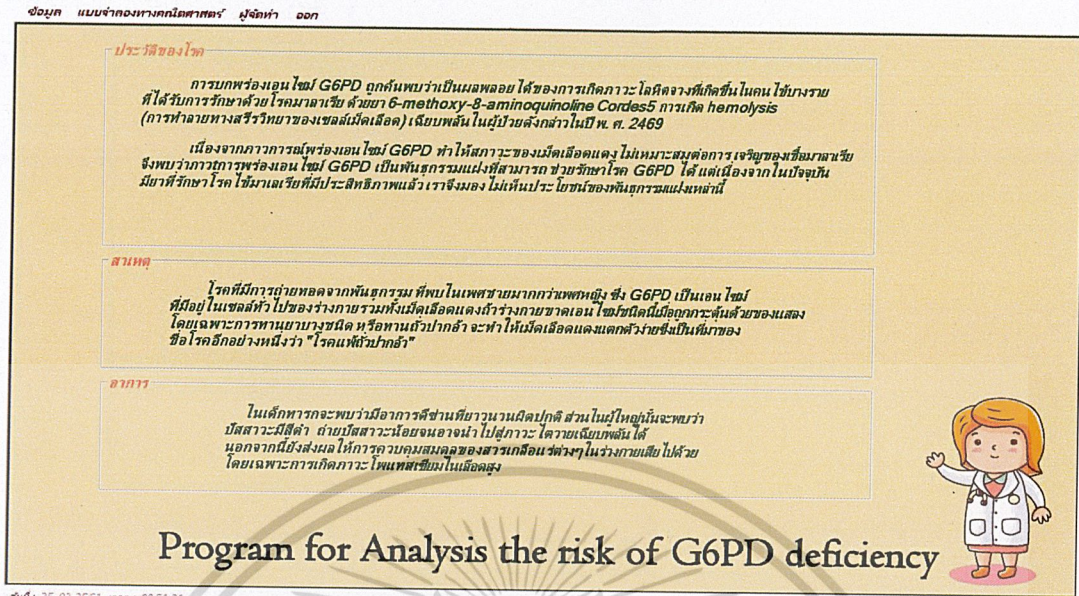 ข้อมูล แบบจำลองทางคณิตศาสตร์ ผู้จัดทำ ออก
ประวัติของโรค
การบกพร่องเอนไซม์ G6PD ถูกค้นพบว่าเป็นผลพลอยได้ของการเกิดภาวะโลหิตจางที่เกิดขึ้นในคนไข้บางราย
ที่ได้รับการรักษาด้วยโรคมาลาเรีย ด้วยยา 6-methoxy-8-aminoquinoline Cordes5 การเกิด hemolysis
(การทำลายทางสรีรวิทยาของเซลล์เม็ดเลือด) เฉียบพลันในผู้ป่วยดังกล่าวในปี พ. ศ. 2469
เนื่องจากภาวการณ์พร่องเอนไซม์ G6PD ทำให้สภาวะของเม็ดเลือดแดงไม่เหมาะสมต่อการเจริญของเชื้อมาลาเรีย
จึงพบว่าภาวการพร่องเอนไซม์ G6PD เป็นพันธุกรรมแฝงที่สามารถช่วยรักษาโรค G6PD ได้ แต่เนื่องจากในปัจจุบัน
มียาที่รักษาโรคไข้มาเลเรียที่มีประสิทธิภาพแล้ว เราจึงมองไม่เห็นประโยชน์ของพันธุกรรมแฝงเหล่านี้
สาเหตุ
โรคที่มีการถ่ายทอดจากพันธุกรรม ที่พบในเพศชายมากกว่าเพศหญิง ซึ่ง G6PD เป็นเอนไซม์
ที่มีอยู่ในเซลล์ทั่วไปของร่างกายรวมทั้งเม็ดเลือดแดงถ้าร่างกายขาดเอนไซม์ชนิดนี้เมื่อถูกกระตุ้นด้วยของแสลง
โดยเฉพาะการทานยาบางชนิด หรือทานถั่วปากอ้า จะทำให้เม็ดเลือดแดงแตกตัวง่ายซึ่งเป็นที่มาของ
ชื่อโรคอีกอย่างหนึ่งว่า "โรคแพ้ถั่วปากอ้า"
อาการ
ในเด็กทารกจะพบว่ามีอาการดีซ่านที่ยาวนานผิดปกติ ส่วนในผู้ใหญ่นั้นจะพบว่า
ปัสสาวะมีสีดำ ถ่ายปัสสาวะน้อยจนอาจนำไปสู่ภาวะไตวายเฉียบพลันได้
นอกจากนี้ยังส่งผลให้การควบคุมสมดุลของสารเกลือแร่ต่างๆในร่างกายเสียไปด้วย
โดยเฉพาะการเกิดภาวะโพแทสเซียมในเลือดสูง
Program for Analysis the risk of G6PD deficiency